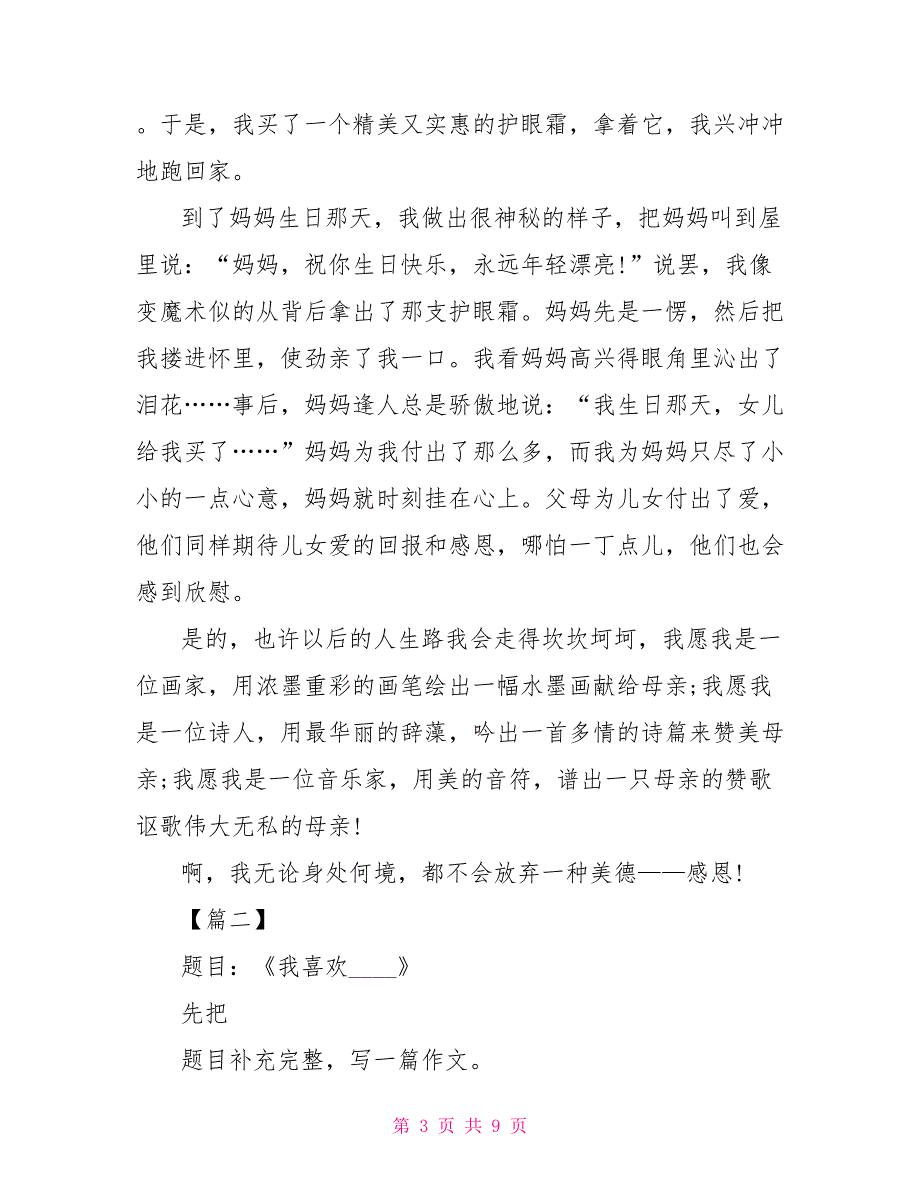 。于是，我买了一个精美又实惠的护眼霜，拿着它，我兴冲冲
地跑回家。
到了妈妈生日那天，我做出很神秘的样子，把妈妈叫到屋
里说：“妈妈，祝你生日快乐，永远年轻漂亮!”说罢，我像
变魔术似的从背后拿出了那支护眼霜。妈妈先是一愣，然后把
我搂进怀里，使劲亲了我一口。我看妈妈高兴得眼角里沁出了
泪花……事后，妈妈逢人总是骄傲地说：“我生日那天，女儿
给我买了……”妈妈为我付出了那么多，而我为妈妈只尽了小
小的一点心意，妈妈就时刻挂在心上。父母为儿女付出了爱，
他们同样期待儿女爱的回报和感恩，哪怕一丁点儿，他们也会
感到欣慰。
是的，也许以后的人生路我会走得坎坎坷坷，我愿我是一
位画家，用浓墨重彩的画笔绘出一幅水墨画献给母亲;我愿我
是一位诗人，用最华丽的辞藻，吟出一首多情的诗篇来赞美母
亲;我愿我是一位音乐家，用美的音符，谱出一只母亲的赞歌
讴歌伟大无私的母亲!
啊，我无论身处何境，都不会放弃一种美德——感恩!
【篇二】
题目：《我喜欢____》
先把
题目补充完整，写一篇作文。
第 3 页 共 9 页